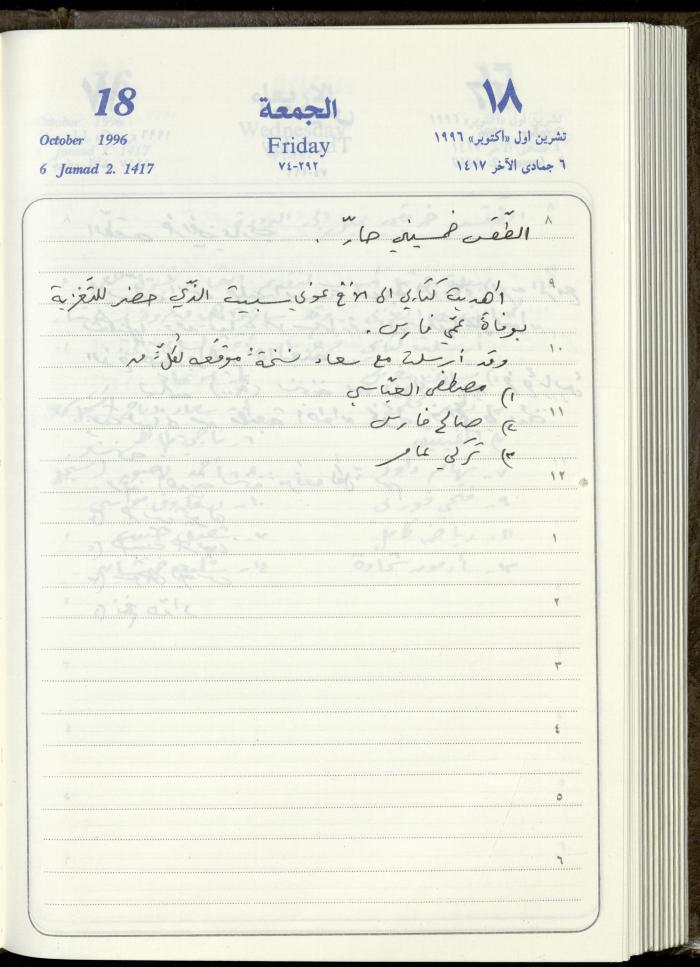 18
October 1996
6 Jamad 2. 1417
الجمعة
Friday
٢٩٢-٧٤
١٨
تشرين اول «اكتوبر» ١٩٩٦
٦ جمادى الآخر ١٤١٧
٨
الطّقس خمسيني حارّ.
٩
أهديت كتابي الى الأخ عوني سبيت الذّي حضر للتّعزية
بوفاة عمّي فارس.
١٠
وقد أرسلت مع سعاد نسخةً موقّعه لكلٍّ من
١) مصطفى العبّاسي
١١
٢) صالح فارس
٣) تركي عامر
١٢
١
٢
٣
٤
٥
٦